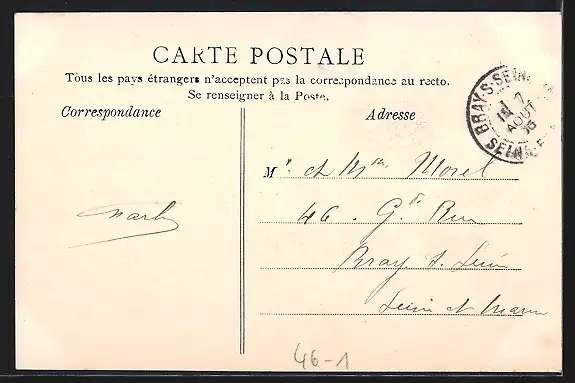 CARTE POSTALE
Tous les pays étrangers n'acceptent pas la correspondance au recto.
Se renseigner à la Poste.
Correspondance
Adresse
BRAY-S-SEINE
AOUT
SEINE-E
Mr et Mme Morel
46. Gde Rue
Bray s. Seine
Seine et Marne
46-1